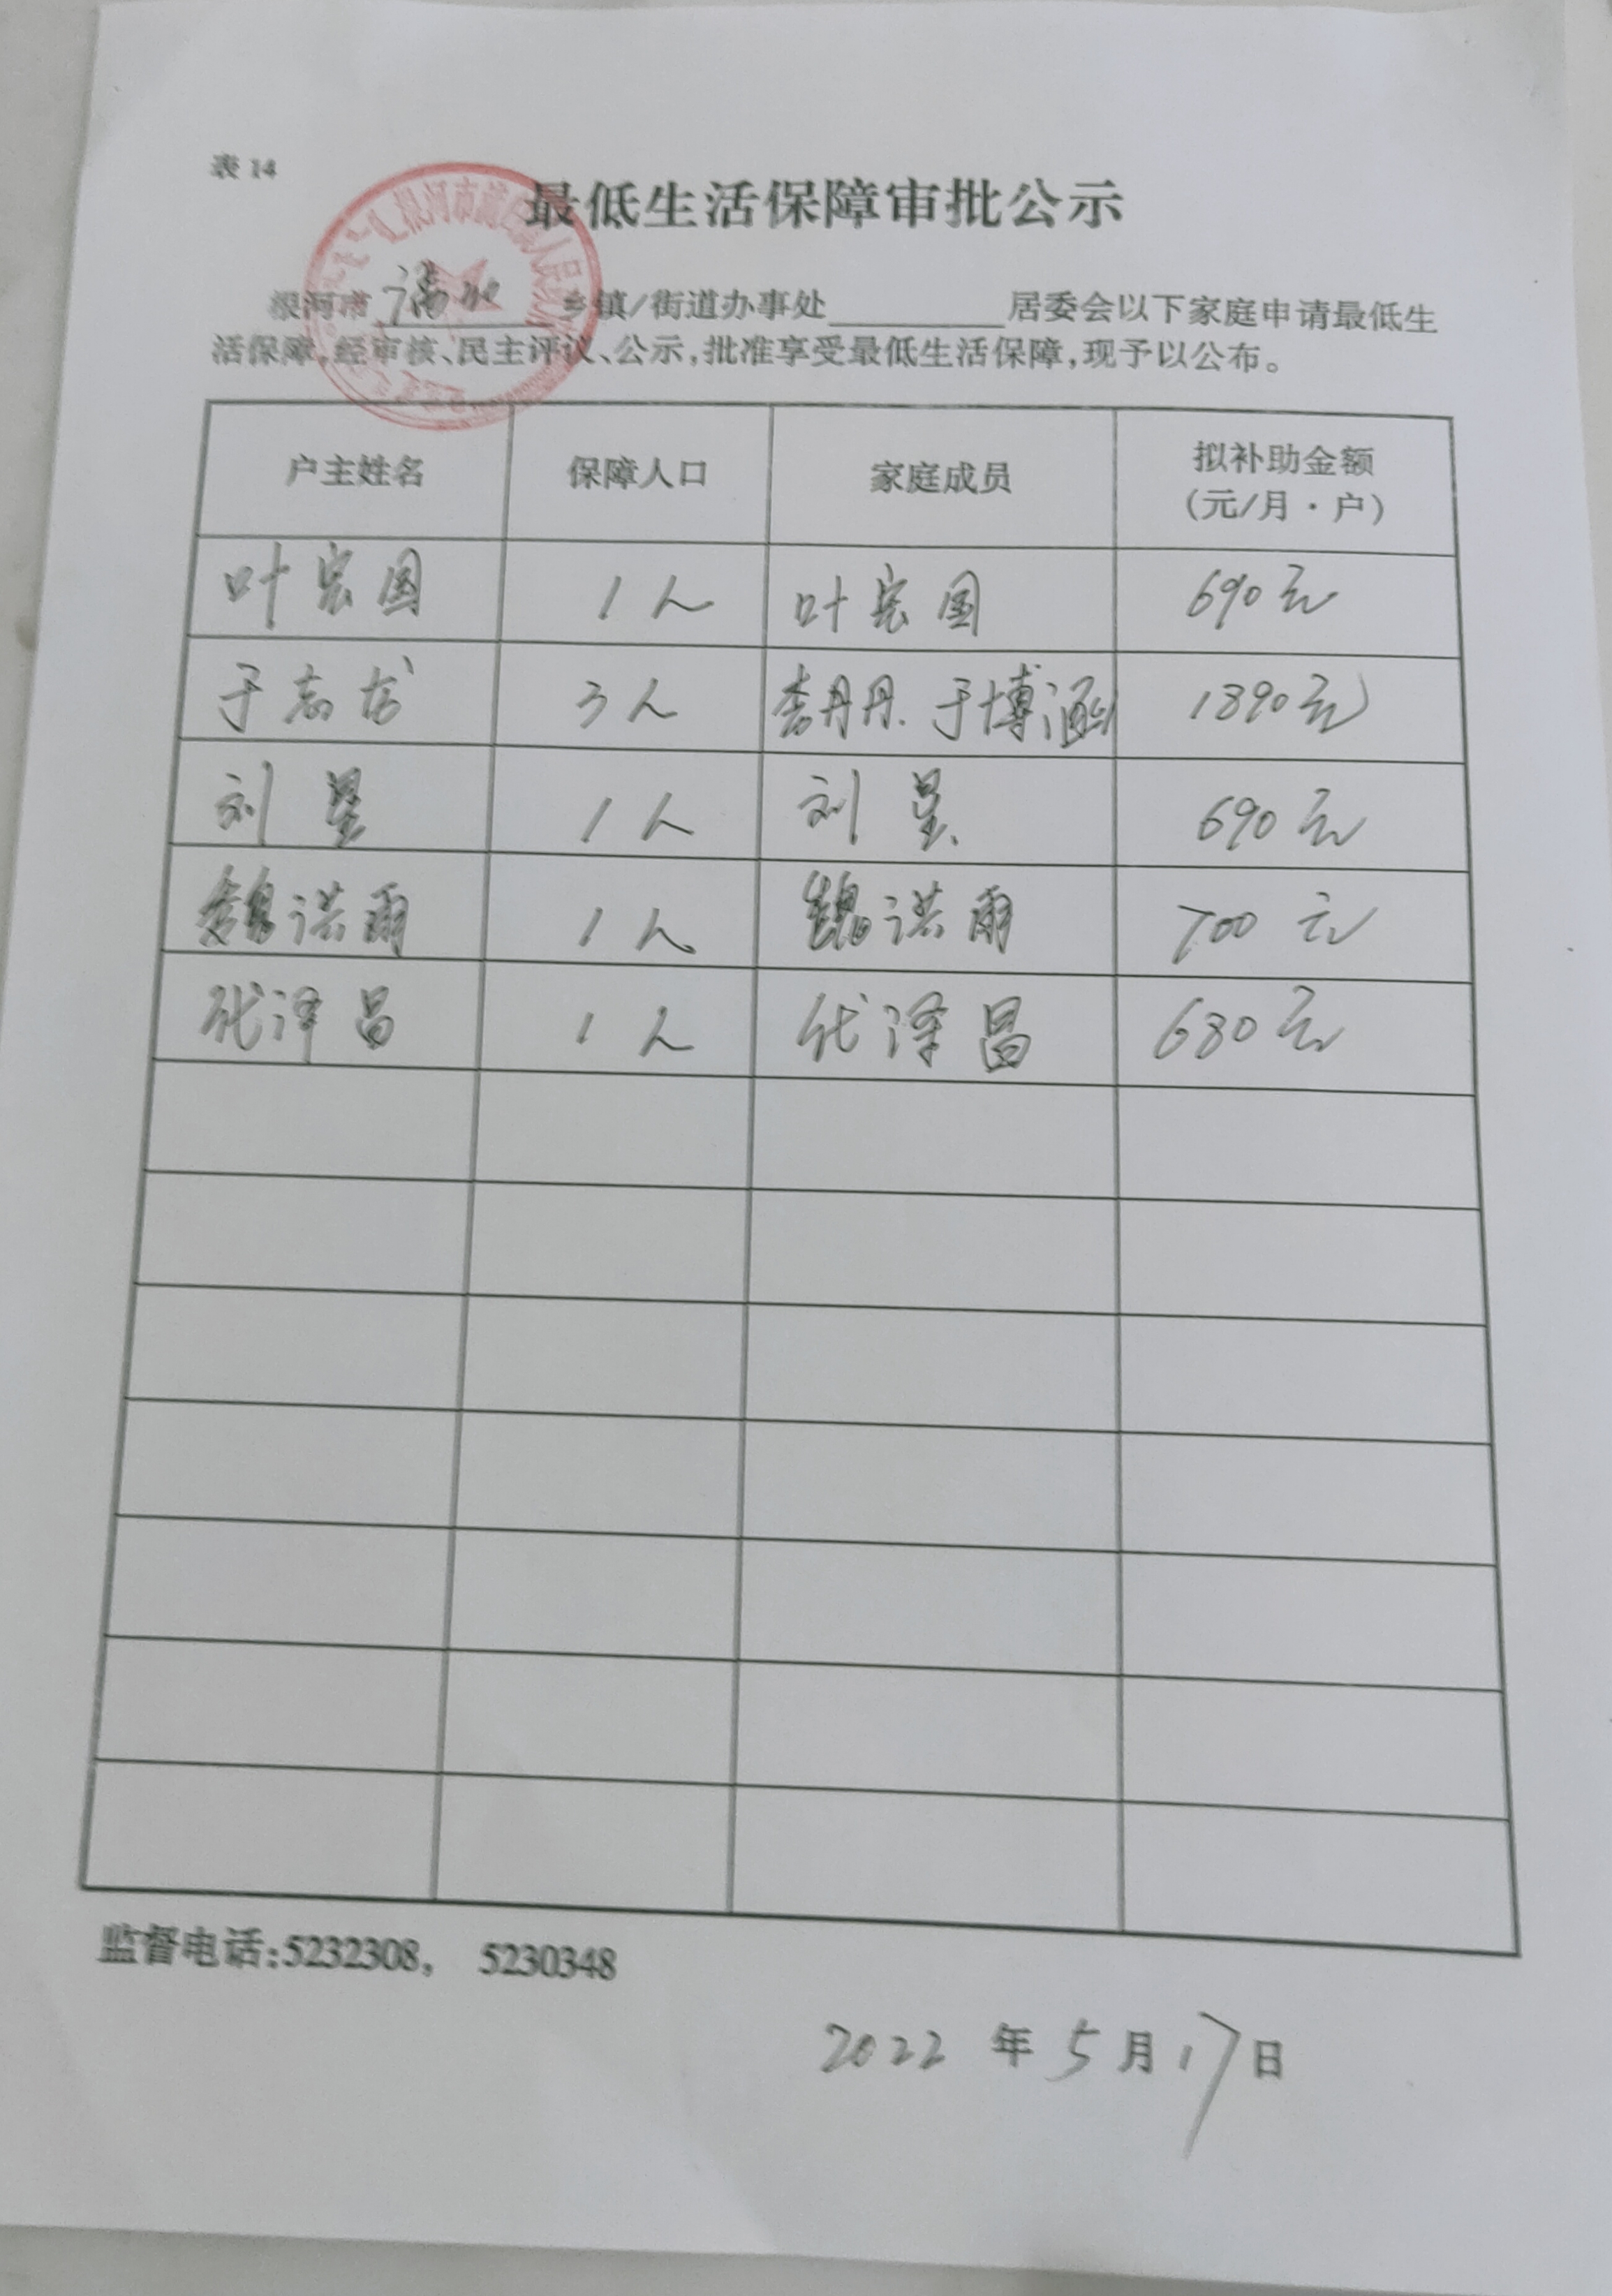 表 14
最低生活保障审批公示
根河市 满归 乡镇/街道办事处 居委会以下家庭申请最低生
活保障,经审核、民主评议、公示,批准享受最低生活保障,现予以公布。
户主姓名 保障人口 家庭成员 拟补助金额
(元/月·户)
叶宏国 1人 叶宏国 690元
于志龙 3人 李丹丹、于博涵 1890元
刘星 1人 刘星 690元
魏洪雨 1人 魏洪雨 700元
代泽昌 1人 代泽昌 680元
监督电话:5232308, 5230348
2022 年 5 月 17 日